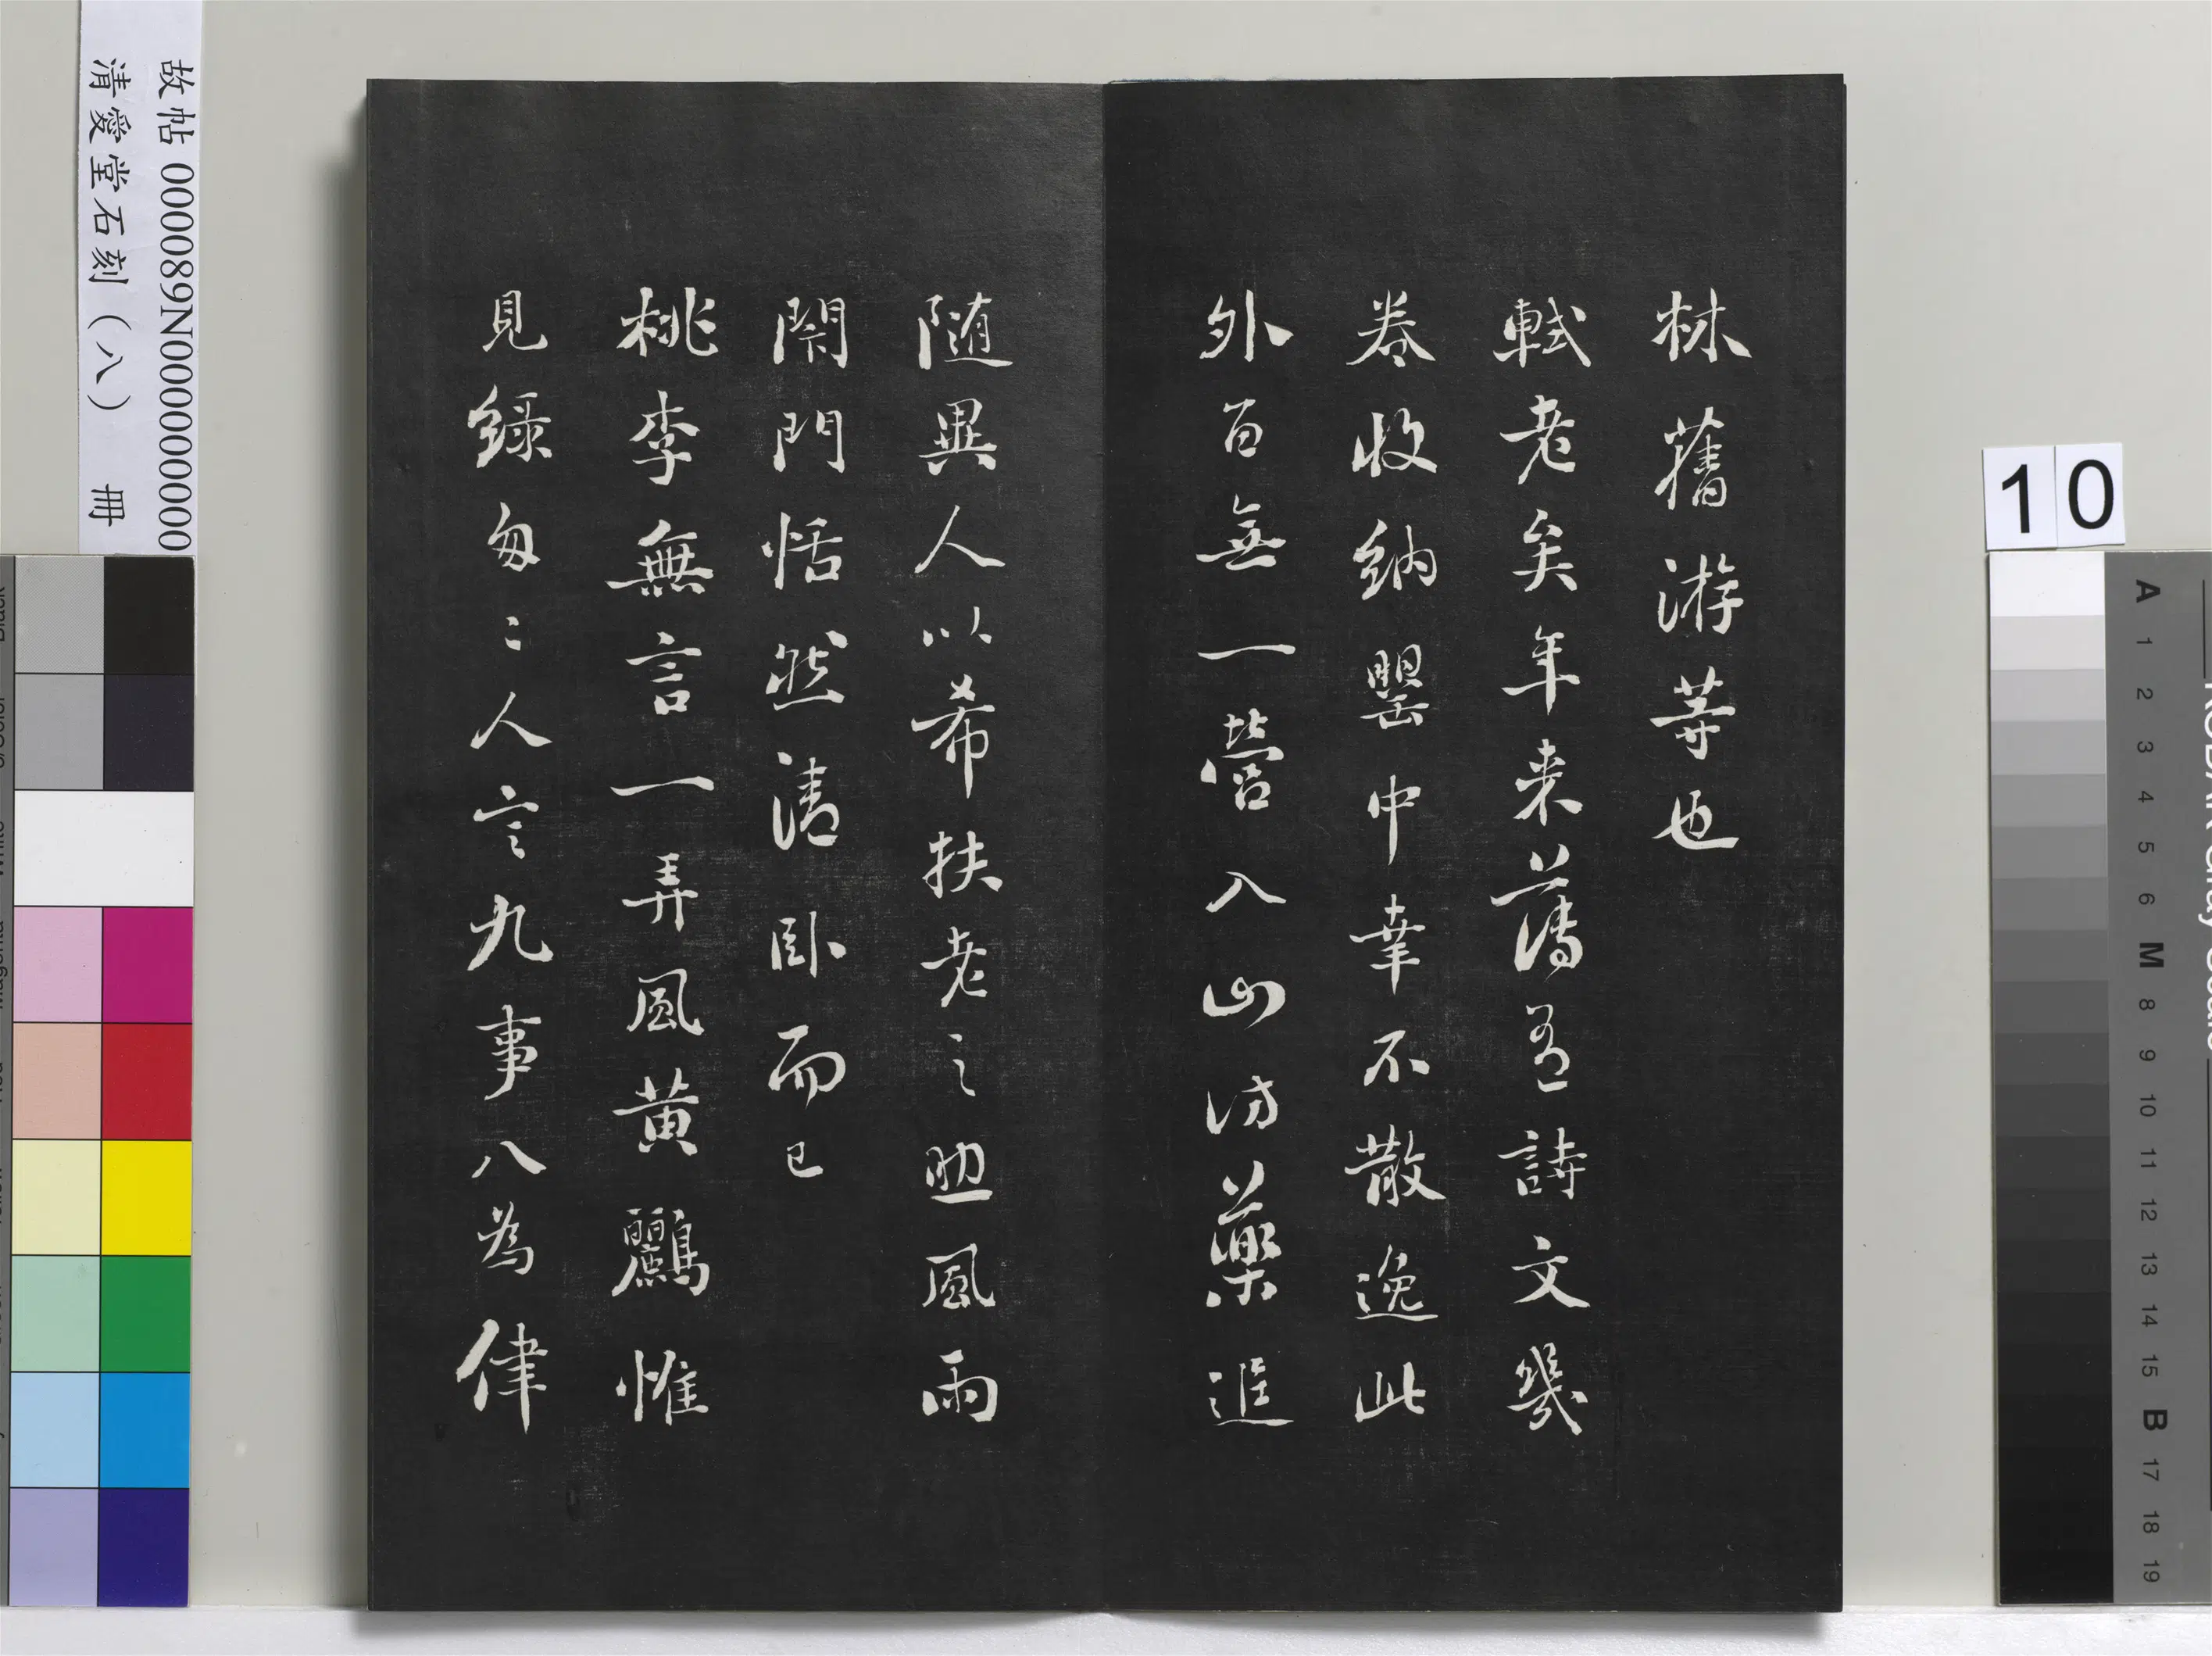 故帖 000089N000000000
清愛堂石刻(八) 冊
10
林舊游等也
軾老矣年来薄詩文幾
卷收納罌中幸不散逸此
外百無一營入山訪藥追
隨異人以希扶老之助風雨
閉門恬然清卧而已
桃李無言一弄風黄鸝惟
見録匆〻人言九事八為律
A 1 2 3 4 5 6 M 8 9 10 11 12 13 14 15 B 17 18 19